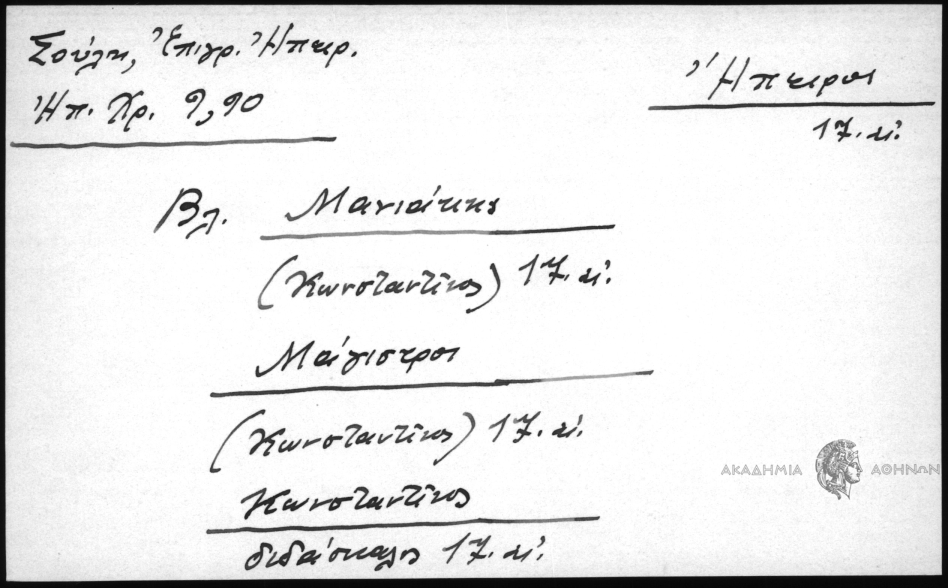 Σούλη, Ἐπιγρ. Ἠπειρ.
Ἠπ. Χρ. 9, 90
Ἤπειρος
17. αἰ.
Βλ. Μανιάκης
(Κωνσταντῖνος) 17. αἰ.
Μάγιστρος
(Κωνσταντῖνος) 17. αἰ.
Κωνσταντῖνος
διδάσκαλος 17. αἰ.
ΑΚΑΔΗΜΙΑ ΑΘΗΝΩΝ